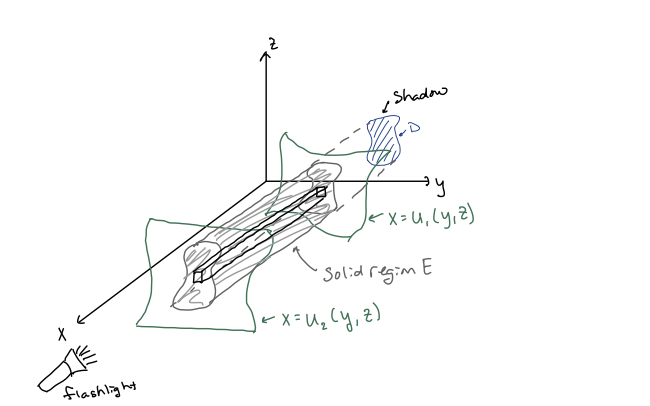 z
Shadow
D
y
x = u₁(y,z)
Solid region E
x = u₂(y,z)
x
flashlight